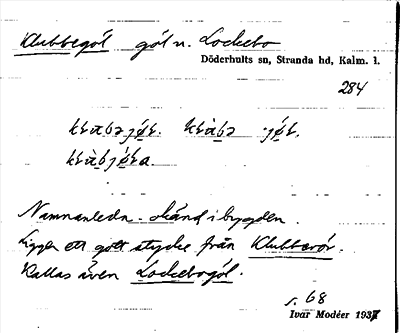 Klubbegöl göl n. Lockebo
Döderhults sn, Stranda hd, Kalm. l.
284
Namnanledn. okänd i bygden.
Ligger ett gott stycke från Klubberör.
Kallas även Lockebogöl.
s. 68
Ivar Modéer 1937